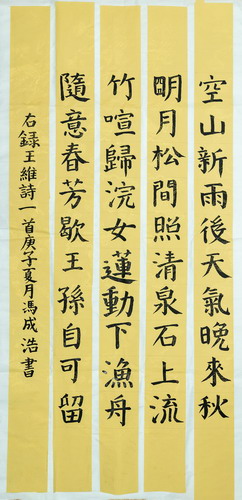 空山新雨後天氣晚來秋
明月松間照清泉石上流
竹喧歸浣女蓮動下漁舟
隨意春芳歇王孫自可留
右録王維詩一首庚子夏月馮成浩書